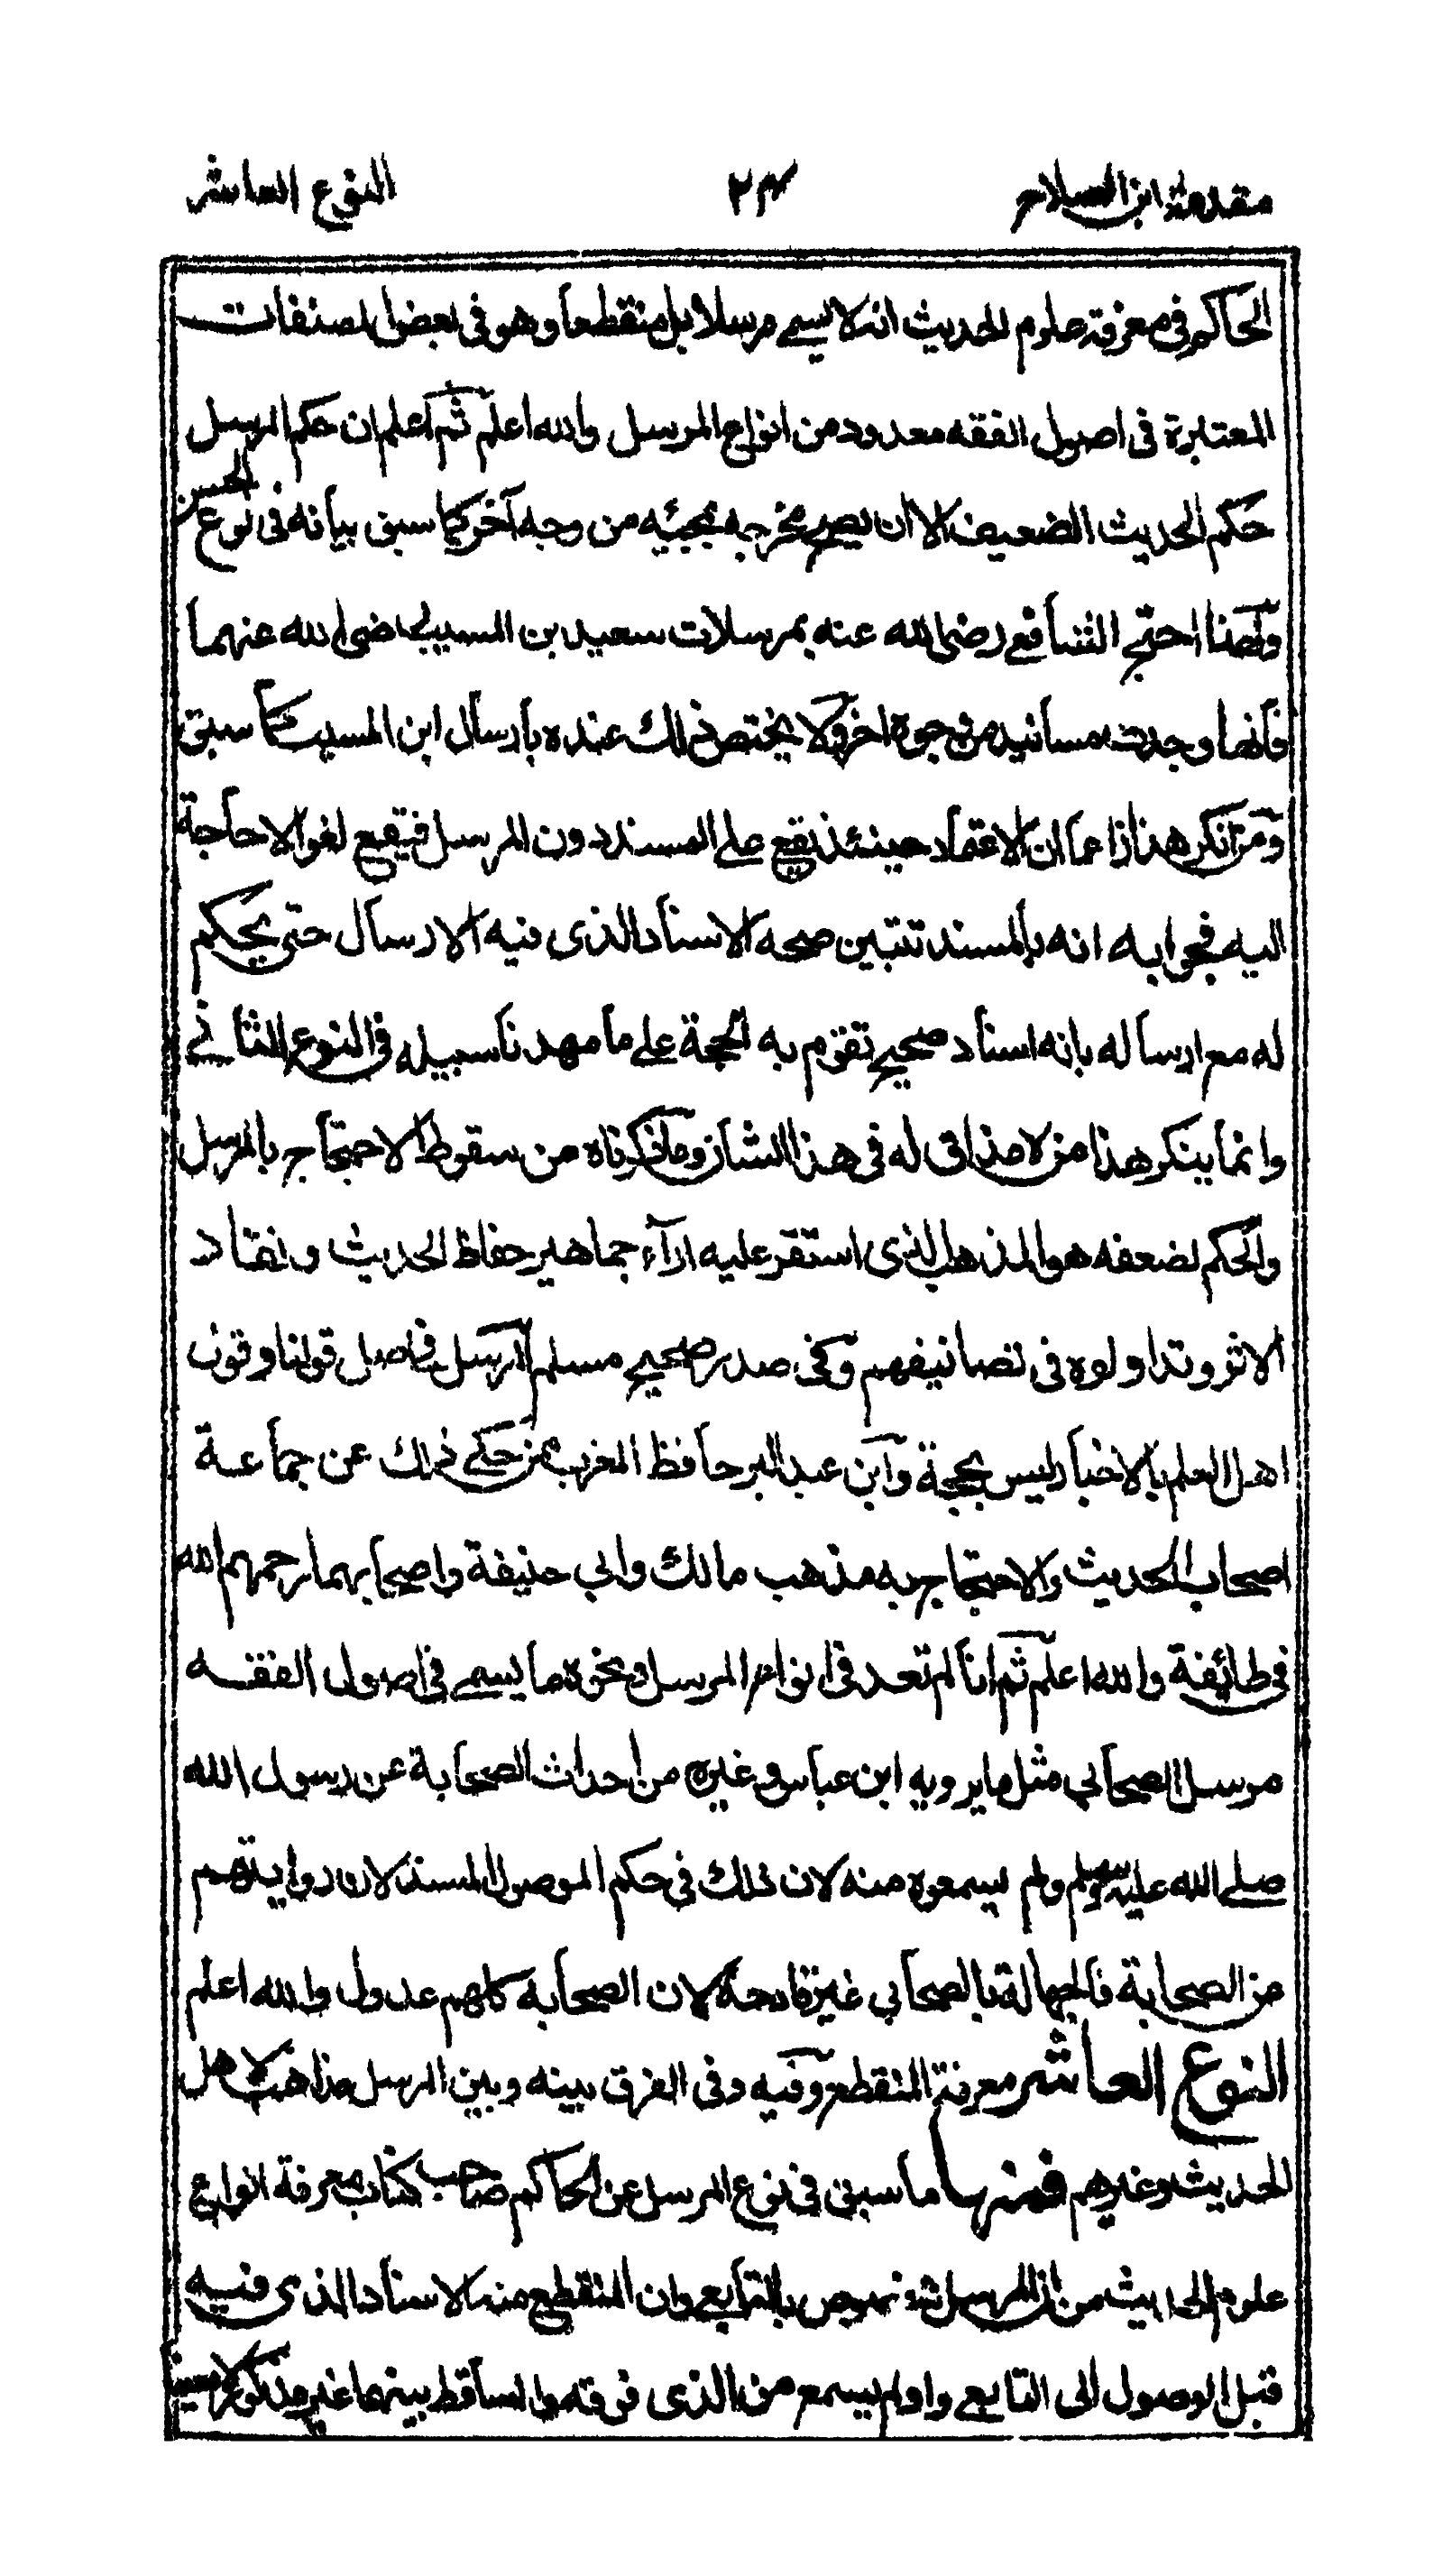 مقدمة ابن الصلاح ٢٣ النوع العاشر
الحاكم في معرفة علوم الحديث انه لا يسمى مرسلا بل منقطعا وهو في بعض المصنفات
المعتبرة في اصول الفقه معدود من انواع المرسل والله اعلم ثم اعلم ان حكم المرسل
حكم الحديث الضعيف الا ان يصح مخرجه بمجيئه من وجه آخر كما سبق بيانه في نوع الحسن
ولهذا احتج الشافعي رضي الله عنه بمرسلات سعيد بن المسيب رضي الله عنهما
فانها وجدت مسانيد من وجوه اخر ولا يختص ذلك عنده بارسال ابن المسيب كما سبق
ومن انكر هذا زاعما ان الاعتماد حينئذ يقع على المسند دون المرسل فيقع لغوا لا حاجة
اليه فجوابه انه بالمسند تتبين صحة الاسناد الذي فيه الارسال حتى يحكم
له مع ارساله بانه اسناد صحيح تقوم به الحجة على ما مهدنا سبيله في النوع الثاني
وانما ينكر هذا من لا مذاق له في هذا الشان وما ذكرناه من سقوط الاحتجاج بالمرسل
والحكم لضعفه هو المذهب الذي استقر عليه ارآء جماهير حفاظ الحديث ونقاد
الاثر وتداولوه في تصانيفهم وفي صدر صحيح مسلم المرسل في اصل قولنا وقول
اهل العلم بالاخبار ليس بحجة وابن عبد البر حافظ المغرب ممن حكى ذلك عن جماعة
اصحاب الحديث والاحتجاج به مذهب مالك وابي حنيفة واصحابهما رحمهم الله
في طائفة والله اعلم ثم انا لم نعد في انواع المرسل ونحوه ما يسمى في اصول الفقه
مرسل الصحابي مثل ما يرويه ابن عباس وغيره من احداث الصحابة عن رسول الله
صلى الله عليه وسلم ولم يسمعوه منه لان ذلك في حكم الموصول المسند لان روايتهم
من الصحابة فالجهالة بالصحابي غير قادحة لان الصحابة كلهم عدول والله اعلم
النوع العاشر معرفة المنقطع وفيه وفي الفرق بينه وبين المرسل مذاهب لاهل
الحديث وغيرهم فمنها ما سبق في نوع المرسل عن الحاكم صاحب كتاب معرفة انواع
علوم الحديث من ان المرسل مخصوص بالتابعي وان المنقطع منه الاسناد الذي فيه
قبل الوصول الى التابعي راو لم يسمع من الذي فوقه والساقط بينهما غير مذكور لا معينا